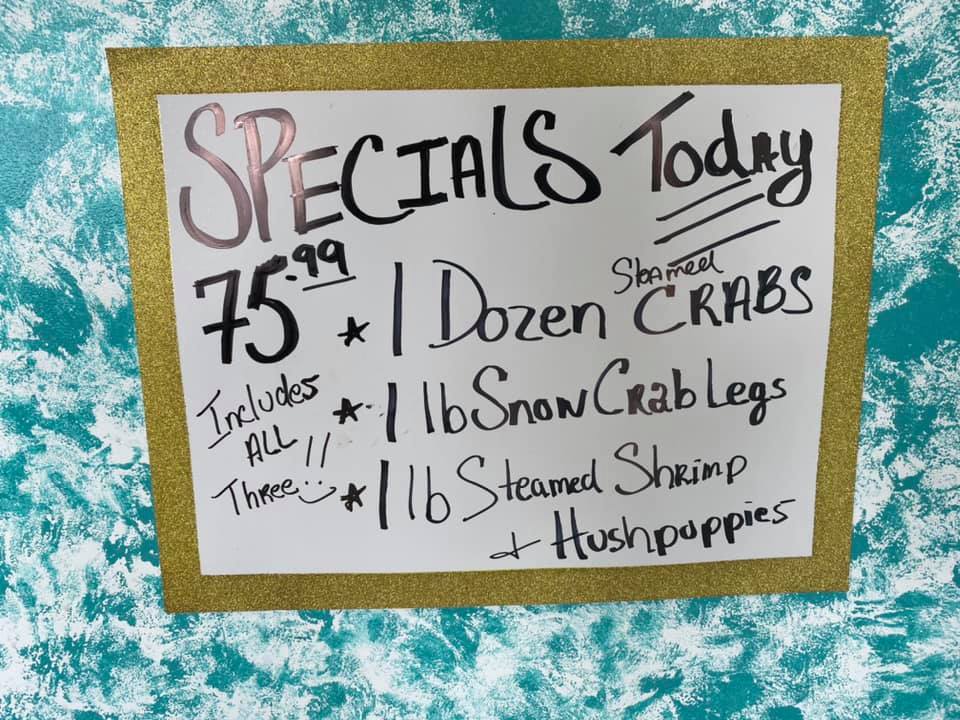 SPECIALS Today
75.99
★ 1 Dozen Steamed CRABS
Includes ALL Three!!
★ 1 lb Snow Crab Legs
★ 1 lb Steamed Shrimp
+ Hushpuppies